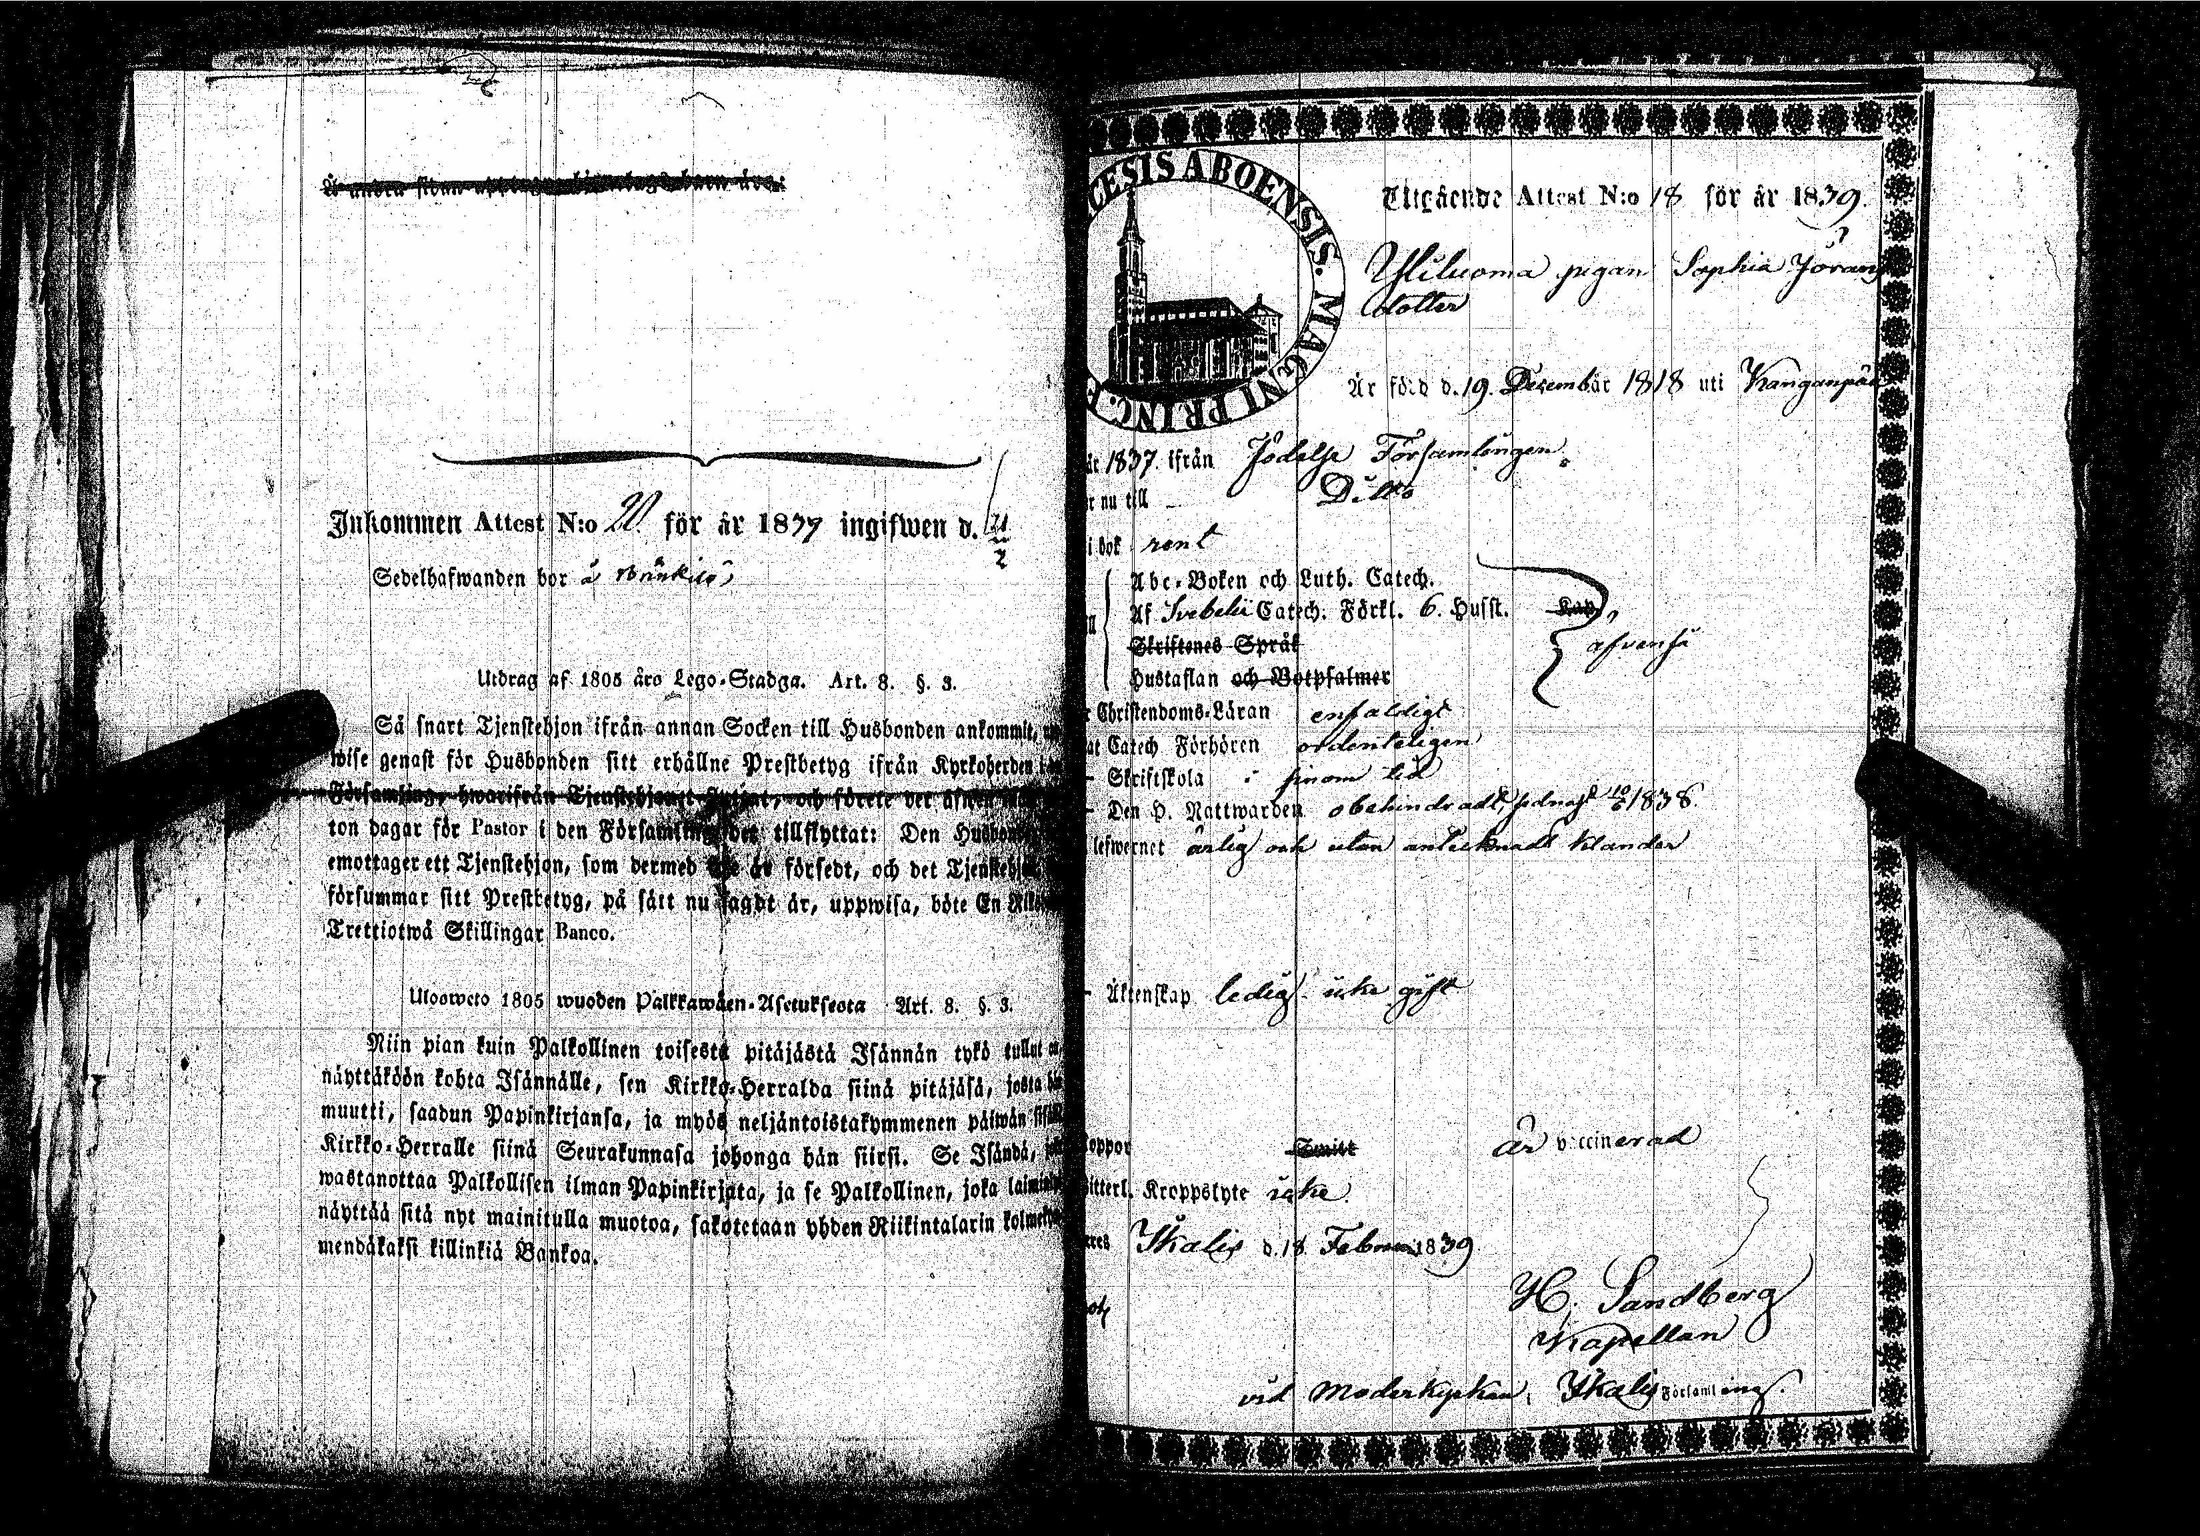 Inkommen Attest N:o 20 för år 1839 ingifwen d. 21/2
Sedelhafwanden bor å
Utdrag af 1805 års Lego-Stadga. Art. 8. §. 3.
Så snart Tjenstehjon ifrån annan Socken till Husbonden ankommit,
wise genast för Husbonden sitt erhållne Prestbetyg ifrån Kyrkoherden i
Församling, hwarifrån Tjenstehjonet och förete det
ton dagar för Pastor i den Församling det tillflyttat: Den
emottager ett Tjenstehjon, som dermed är försedt, och det
försummar sitt Prestbetyg, på sätt nu sagdt är, uppwisa, böte En
Trettiotwå Skillingar Banco.
Ulosweto 1805 wuoden Palkkawäen-Asetuksesta Art. 8. §. 3.
Niin pian kuin Palkollinen toisesta pitäjästä Isännän tykö tullut
näyttäköön kohta Isännälle, sen Kirkko-Herralda siinä pitäjäsä, josta
muutti, saadun Papinkirjansa, ja myös neljäntoistakymmenen päiwän
Kirkko-Herralle siinä Seurakunnasa johonga hän siirsi. Se Isändä,
wastanottaa Palkollisen ilman Papinkirjata, ja se Palkollinen, joka
näyttää sitä nyt mainitulla muotoa, sakotetaan yhden Riikintalarin
mendäkaksi killinkiä Bankoa.
CESIS ABOENSIS. MAGNI PRINC.
Utgående Attest N:o 18 för år 1839.
Yliluoma pigan Sophia Jörans
dotter
Är född d. 19 Decembär 1818 uti Kanganpää
år 1837 ifrån Jodelse Församlingen.
nu till Ditto
i bok rent
Abc-Boken och Luth. Catech.
Af Svebelii Catech. Förkl. 6. Husst. Kap.
Skriftenes Språk
Hustaflan och Botpsalmer
äfvenså
Christendoms-Läran enfaldigt
Catech Förhören ordenteligen
Skriftskola sin tid
Den H. Nattwarden obehindradt, sednast 10/6 1838.
lefwernet ärlig och utan antecknadt klander
Äktenskap ledig icke gift
koppor är vaccinerad
Kroppslyte icke
Ikalis d. 18 Februari 1839
H. Sandberg
Kapellan
vid Moderkyrkan i Ikalis Församling.